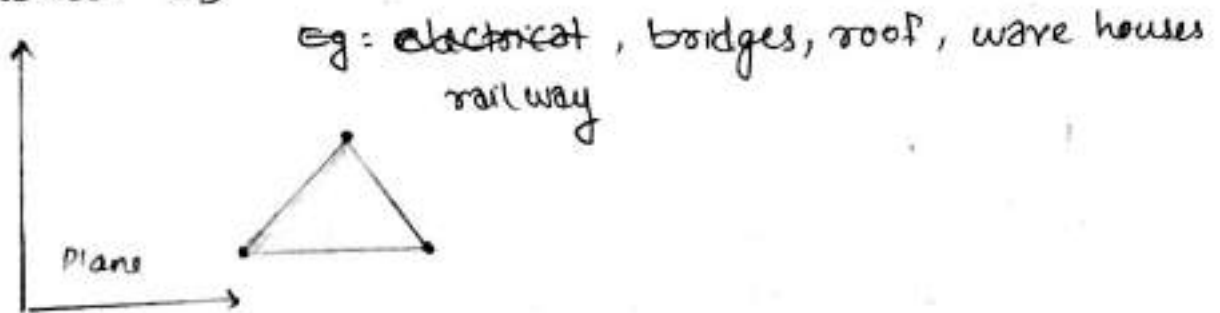 Eg: electrical, bridges, roof, wave houses
railway
Plane